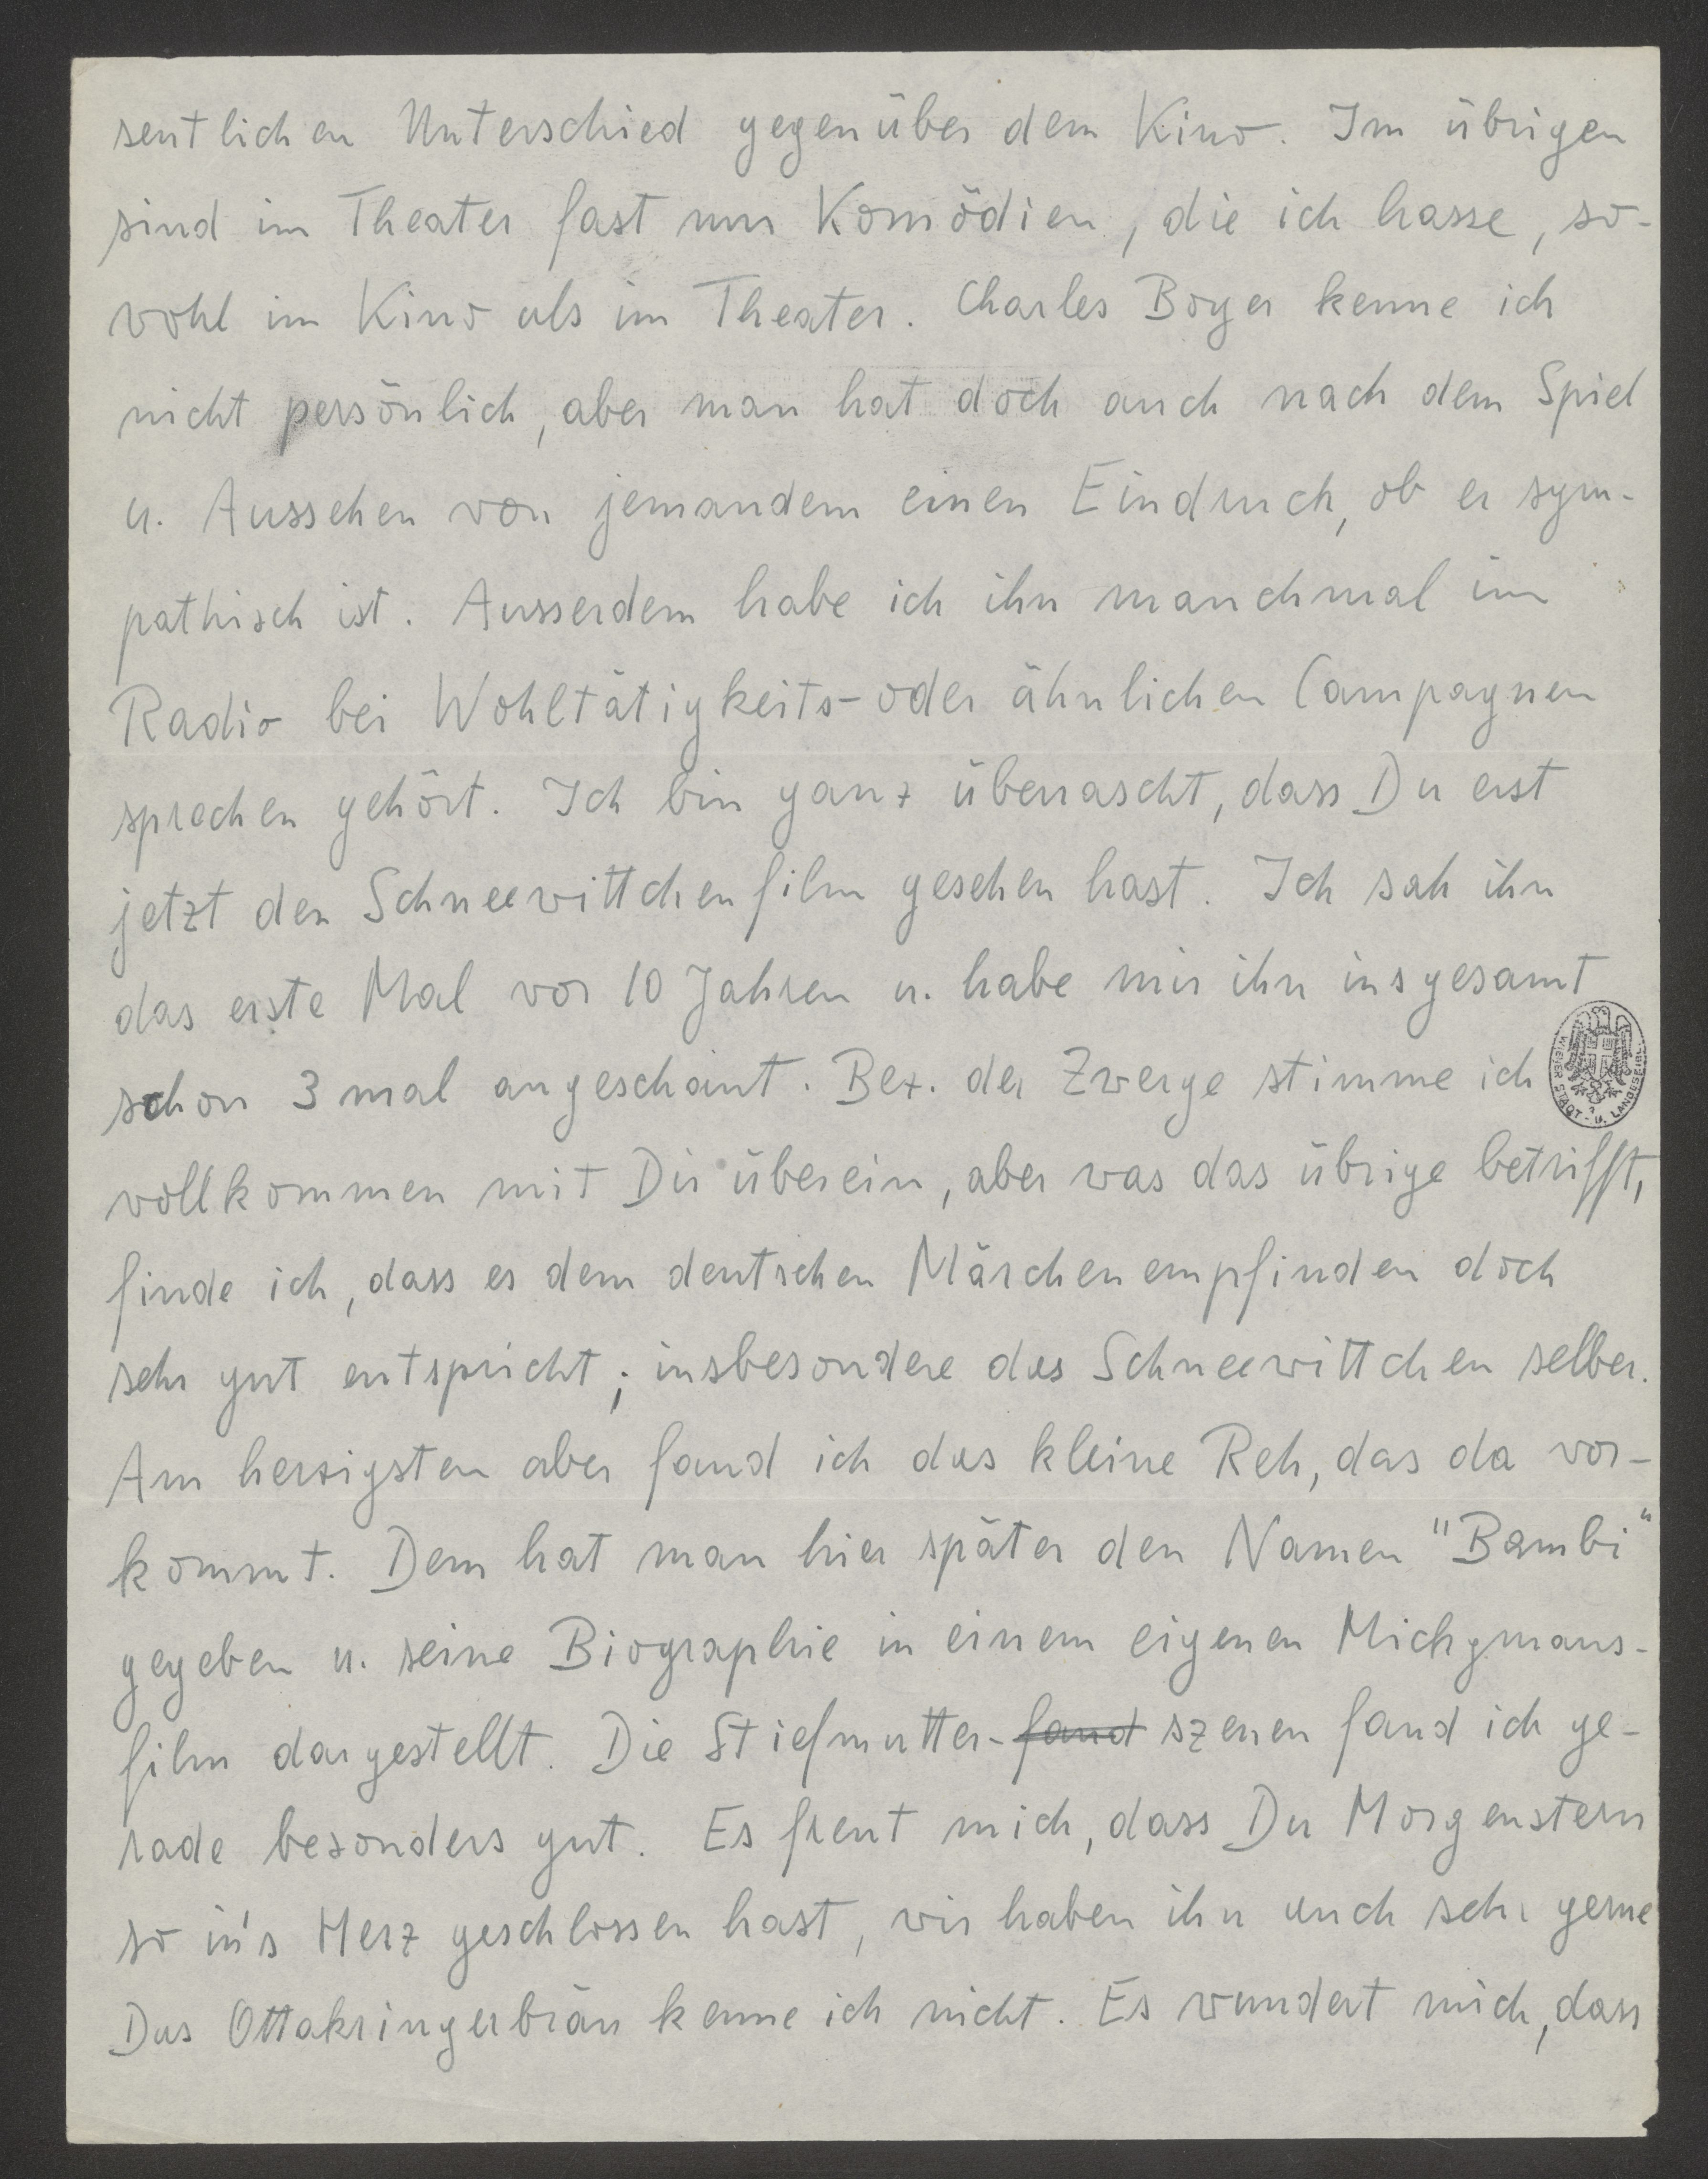 sentlichen Unterschied gegenüber dem Kino. Im übrigen
sind im Theater fast nur Komödien, die ich hasse, so-
wohl im Kino als im Theater. Charles Boyer kenne ich
nicht persönlich, aber man hat doch auch nach dem Spiel
u. Aussehen von jemandem einen Eindruck, ob er sym-
pathisch ist. Ausserdem habe ich ihn manchmal im
Radio bei Wohltätigkeits- oder ähnlichen Campagnen
sprechen gehört. Ich bin ganz überrascht, dass Du erst
jetzt den Schneewittchenfilm gesehen hast. Ich sah ihn
das erste Mal vor 10 Jahren u. habe mir ihn insgesamt
schon 3 mal angeschaut. Bez. der Zwerge stimme ich
vollkommen mit Dir überein, aber was das übrige betrifft,
finde ich, dass es dem deutschen Märchenempfinden doch
sehr gut entspricht; insbesondere das Schneewittchen selber.
Am herzigsten aber fand ich das kleine Reh, das da vor-
kommt. Dem hat man hier später den Namen "Bambi"
gegeben u. seine Biographie in einem eigenen Mickymaus-
film dargestellt. Die Stiefmutter-fand szenen fand ich ge-
rade besonders gut. Es freut mich, dass Du Morgenstern
so in's Herz geschlossen hast, wir haben ihn auch sehr gerne
Das Ottakringerbräu kenne ich nicht. Es wundert mich, dass
WIENER STADT- U. LANDESBIBL.